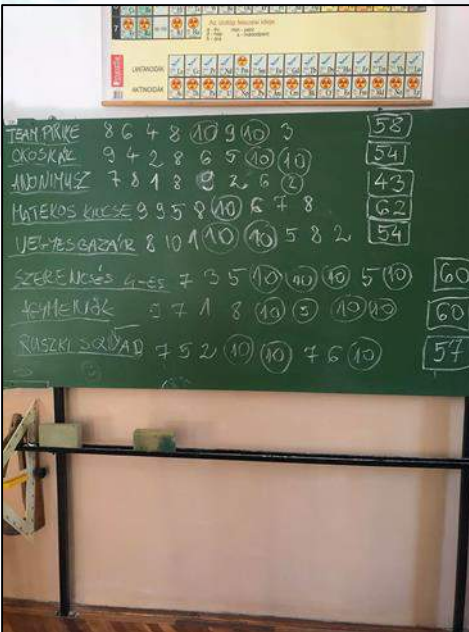 Az izotóp felezési ideje
LANTANOIDÁK
AKTINOIDÁK
TEAM PIRIKE 8 6 4 8 10 9 10 3 58
OKOSKÁK 9 4 2 8 6 5 10 10 54
ANONIMUSZ 7 8 1 8 9 2 6 2 43
MATEKOS KINCSE 9 9 5 8 10 6 7 8 62
VEGYESBAZÁR 8 10 1 10 10 5 8 2 54
SZERENCSÉS 4-ES 7 3 5 10 10 10 5 10 60
9 7 1 8 10 5 10 10 60
RUSZKI SQUAD 7 5 2 10 10 7 6 10 57